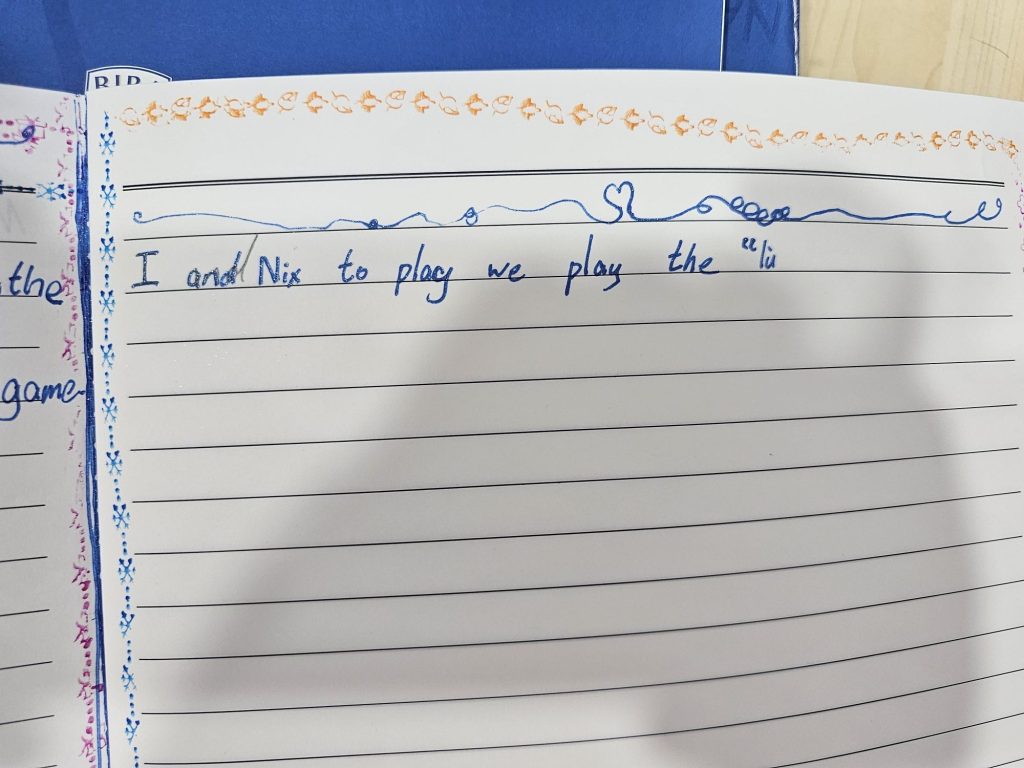 the
game.
I and Nix to play we play the "lù